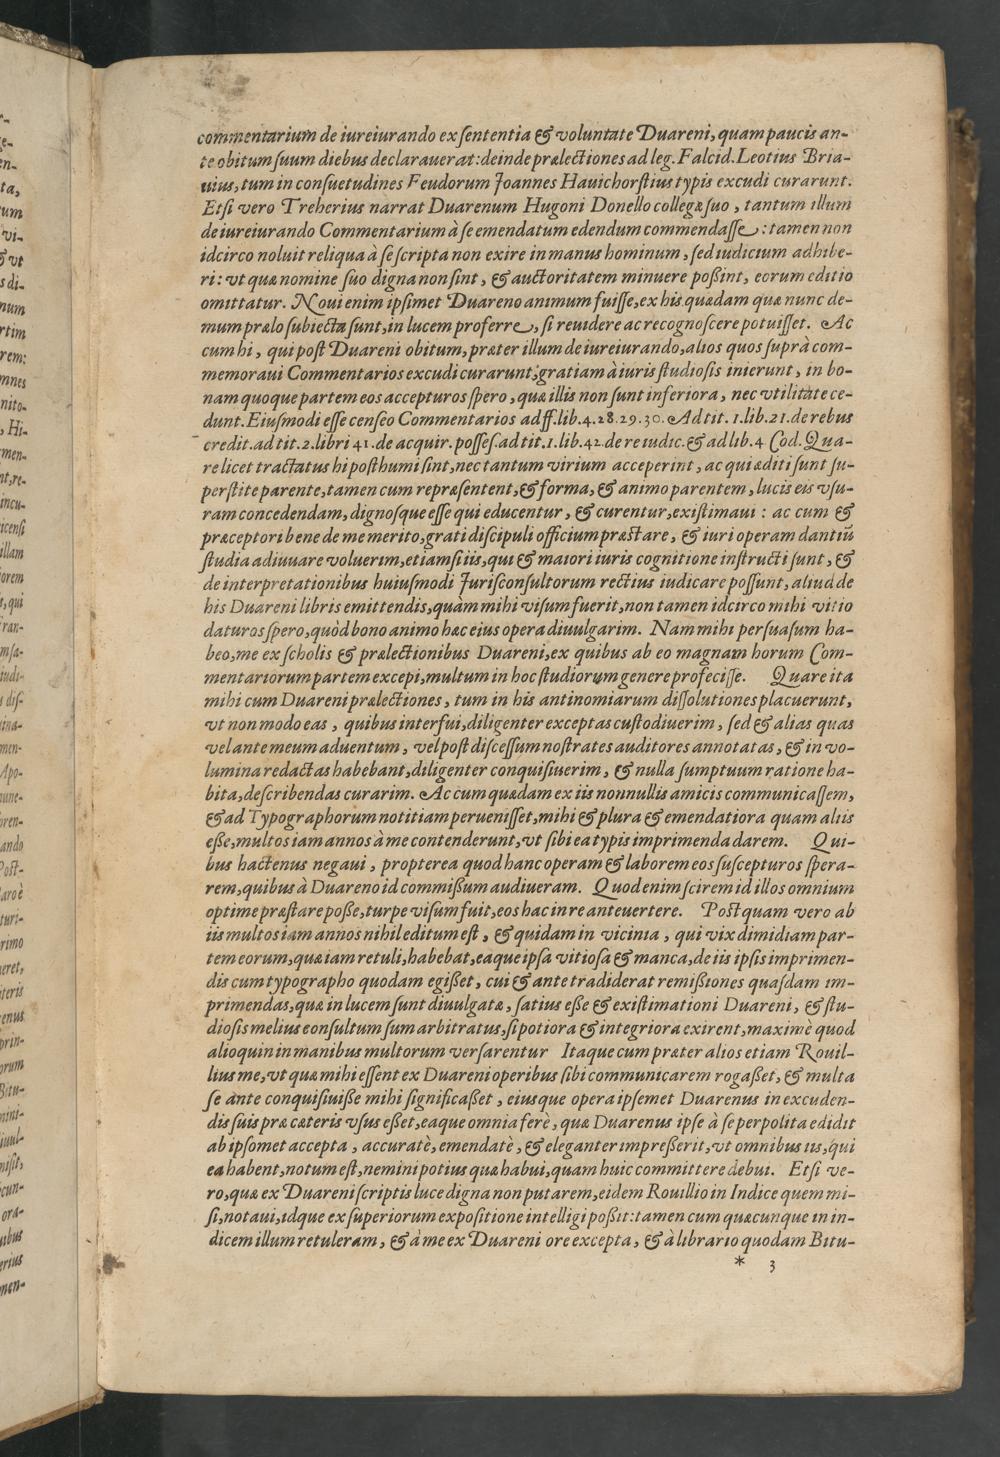 commentarium de iureiurando ex ſententia & voluntate Duareni, quam paucis an-
te obitum ſuum diebus declarauerat: deinde prælectiones ad leg. Falcid. Leotius Bria-
uius, tum in conſuetudines Feudorum Joannes Hauichorſtius typis excudi curarunt.
Etſi vero Treherius narrat Duarenum Hugoni Donello collegæ ſuo, tantum illum
de iureiurando Commentarium à ſe emendatum edendum commendaſſe: tamen non
idcirco noluit reliqua à ſe ſcripta non exire in manus hominum, ſed iudicium adhibe-
ri: vt quæ nomine ſuo digna non ſint, & auctoritatem minuere poßint, eorum editio
omittatur. Noui enim ipſimet Duareno animum fuiſſe, ex his quædam quæ nunc de-
mum prælo ſubiecta ſunt, in lucem proferre, ſi reuidere ac recognoſcere potuiſſet. Ac
cum hi, qui poſt Duareni obitum, præter illum de iureiurando, alios quos ſuprà com-
memoraui Commentarios excudi curarunt, gratiam à iuris ſtudioſis inierunt, in bo-
nam quoque partem eos accepturos ſpero, quæ illis non ſunt inferiora, nec vtilitate ce-
dunt. Eiuſmodi eſſe cenſeo Commentarios ad ff. lib. 4. 28. 29. 30. Ad tit. 1. lib. 21. de rebus
credit. ad tit. 2. libri 41. de acquir. poſſeſ. ad tit. 1. lib. 42. de re iudic. & ad lib. 4 Cod. Qua-
re licet tractatus hi poſthumi ſint, nec tantum virium acceperint, ac qui æditi ſunt ſu-
perſtite parente, tamen cum repræſentent, & forma, & animo parentem, lucis eis vſu-
ram concedendam, dignoſque eſſe qui educentur, & curentur, exiſtimaui: ac cum &
præceptori bene de me merito, grati diſcipuli officium præſtare, & iuri operam dantiū
ſtudia adiuuare voluerim, etiamſi iis, qui & maiori iuris cognitione inſtructi ſunt, &
de interpretationibus huiuſmodi Juriſconſultorum rectius iudicare poſſunt, aliud de
his Duareni libris emittendis, quàm mihi viſum fuerit, non tamen idcirco mihi vitio
daturos ſpero, quòd bono animo hæc eius opera diuulgarim. Nam mihi perſuaſum ha-
beo, me ex ſcholis & prælectionibus Duareni, ex quibus ab eo magnam horum Com-
mentariorum partem excepi, multum in hoc ſtudiorum genere profeciſſe. Quare ita
mihi cum Duareni prælectiones, tum in his antinomiarum diſſolutiones placuerunt,
vt non modo eas, quibus interfui, diligenter exceptas cuſtodiuerim, ſed & alias quas
vel ante meum aduentum, vel poſt diſceſſum noſtrates auditores annotatas, & in vo-
lumina redactas habebant, diligenter conquiſiuerim, & nulla ſumptuum ratione ha-
bita, deſcribendas curarim. Ac cum quædam ex iis nonnullis amicis communicaſſem,
& ad Typographorum notitiam perueniſſet, mihi & plura & emendatiora quam aliis
eße, multos iam annos à me contenderunt, vt ſibi ea typis imprimenda darem. Qui-
bus hactenus negaui, propterea quod hanc operam & laborem eos ſuſcepturos ſpera-
rem, quibus à Duareno id commißum audiueram. Quod enim ſcirem id illos omnium
optime præſtare poße, turpe viſum fuit, eos hac in re anteuertere. Poſtquam vero ab
iis multos iam annos nihil editum eſt, & quidam in vicinia, qui vix dimidiam par-
tem eorum, quæ iam retuli, habebat, eaque ipſa vitioſa & manca, de iis ipſis imprimen-
dis cum typographo quodam egißet, cui & ante tradiderat remißiones quaſdam im-
primendas, quæ in lucem ſunt diuulgatæ, ſatius eße & exiſtimationi Duareni, & ſtu-
dioſis melius conſultum ſum arbitratus, ſi potiora & integriora exirent, maximè quod
alioquin in manibus multorum verſarentur Itaque cum præter alios etiam Rouil-
lius me, vt quæ mihi eſſent ex Duareni operibus ſibi communicarem rogaßet, & multa
ſe ante conquiſiuiße mihi ſignificaßet, eiusque opera ipſemet Duarenus in excuden-
dis ſuis præ cæteris vſus eßet, eaque omnia ferè, quæ Duarenus ipſe à ſe perpolita edidit
ab ipſomet accepta, accuratè, emendatè, & eleganter impreßerit, vt omnibus iis, qui
ea habent, notum eſt, nemini potius quæ habui, quam huic committere debui. Etſi ve-
ro, quæ ex Duareni ſcriptis luce digna non putarem, eidem Rouillio in Indice quem mi-
ſi, notaui, idque ex ſuperiorum expoſitione intelligi poßit: tamen cum quæcunque in in-
dicem illum retuleram, & à me ex Duareni ore excepta, & à librario quodam Bitu-
* 3